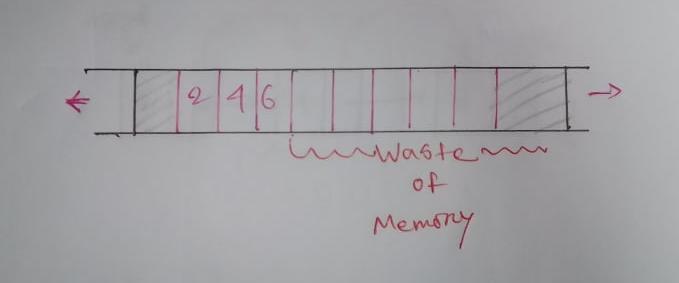 2 4 6
Waste
of
Memory